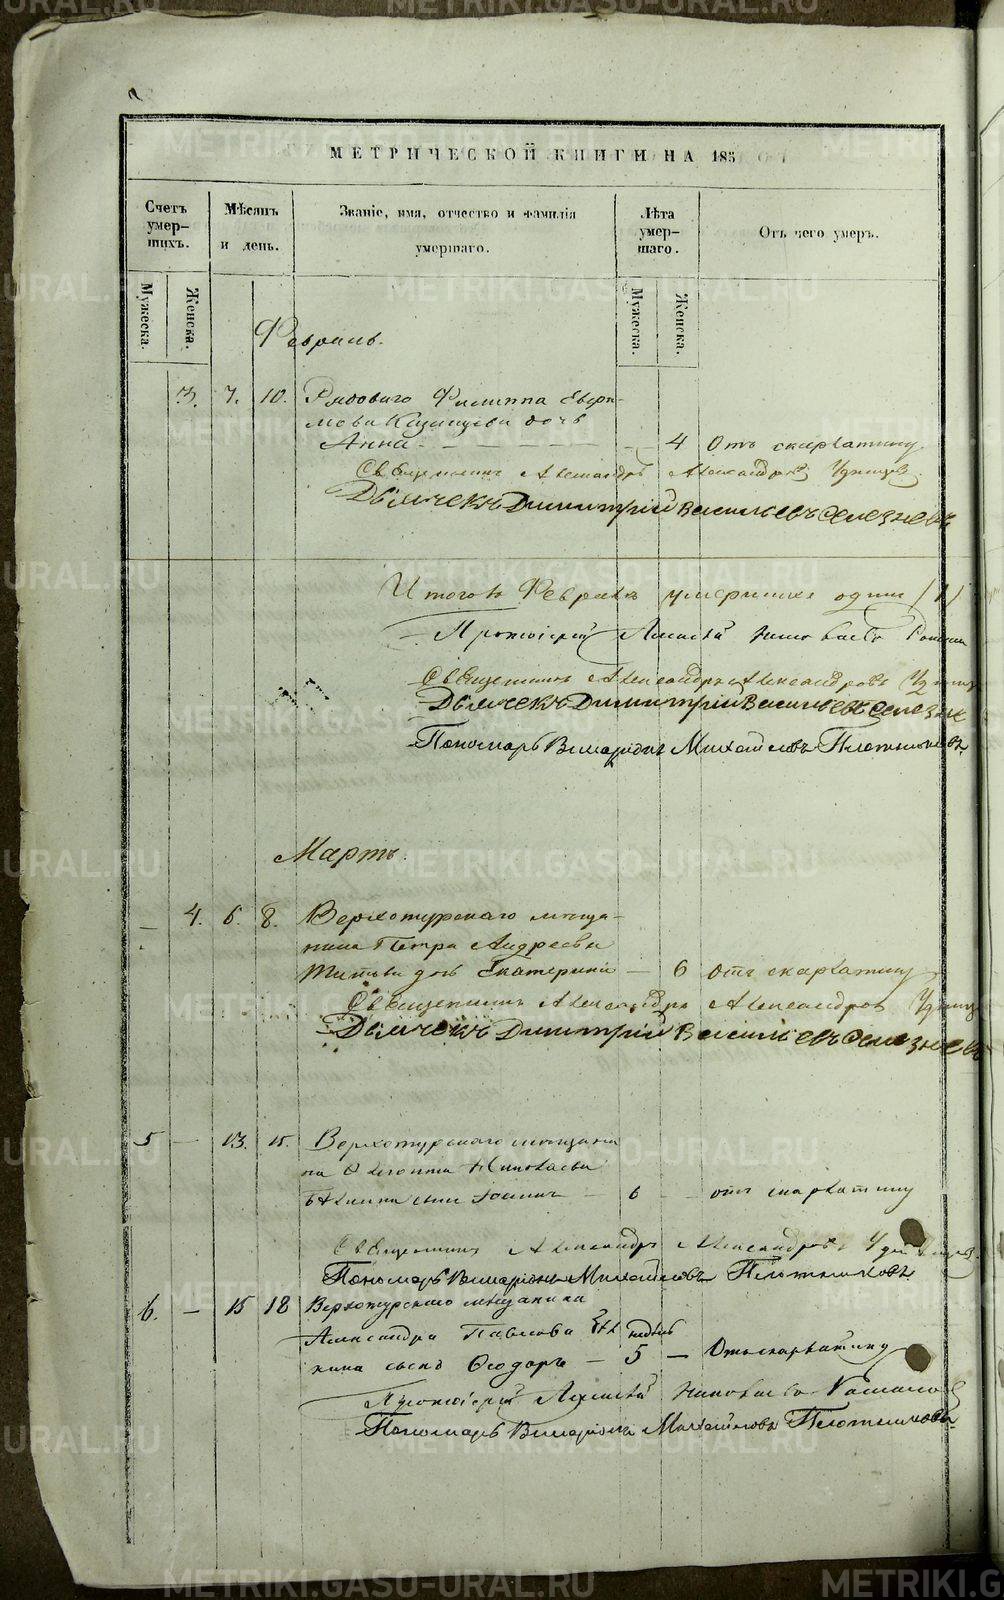 МЕТРИЧЕСКОЙ КНИГИ НА 185
Счетъ умер-шихъ.
Мѣсяцъ и день.
Званіе, имя, отчество и фамилія умершаго.
Лѣта умер-шаго.
Отъ чего умеръ.
Мужеска.
Женска.
Мужеска.
Женска.
Февраль.
3. 7. 10. Рядоваго Филиппа Ефри-
мова дочь
Анна 4 Отъ скарлатину
Священникъ Александръ Александровъ
Дьячекъ Димитрій Васильевъ Селезневъ
Итого въ Февралѣ умершихъ одинъ /1/
Протоіерей Алексѣй
Священникъ Александръ Александровъ
Дьячекъ Димитрій Васильевъ Селезне
Пономарь Виларіонъ Михайловъ Плотниковъ
Мартъ.
— 4. 6. 8. Верхотурскаго мѣща-
нина Петра Андреева
Титова дочь Екатерина — 6 отъ скарлатину
Священникъ Александръ Александровъ
Дьячекъ Димитрій Васильевъ Селезневъ
5 — 13. 15. Верхотурскаго мѣщани
на Николаева
сынъ Іоаннъ — 6 — отъ скарлатину
Священникъ Александръ Александровъ
Пономарь Виларіонъ Михайловъ Плотниковъ
6. — 15 18 Верхотурскаго мѣщанина
Александра Павлова недѣль
кина сынъ Ѳеодоръ — 5 — Отъ скарлатину
Протоіерей Алексѣй
Пономарь Виларіонъ Михайловъ Плотниковъ
METRIKI.GASO-URAL.RU